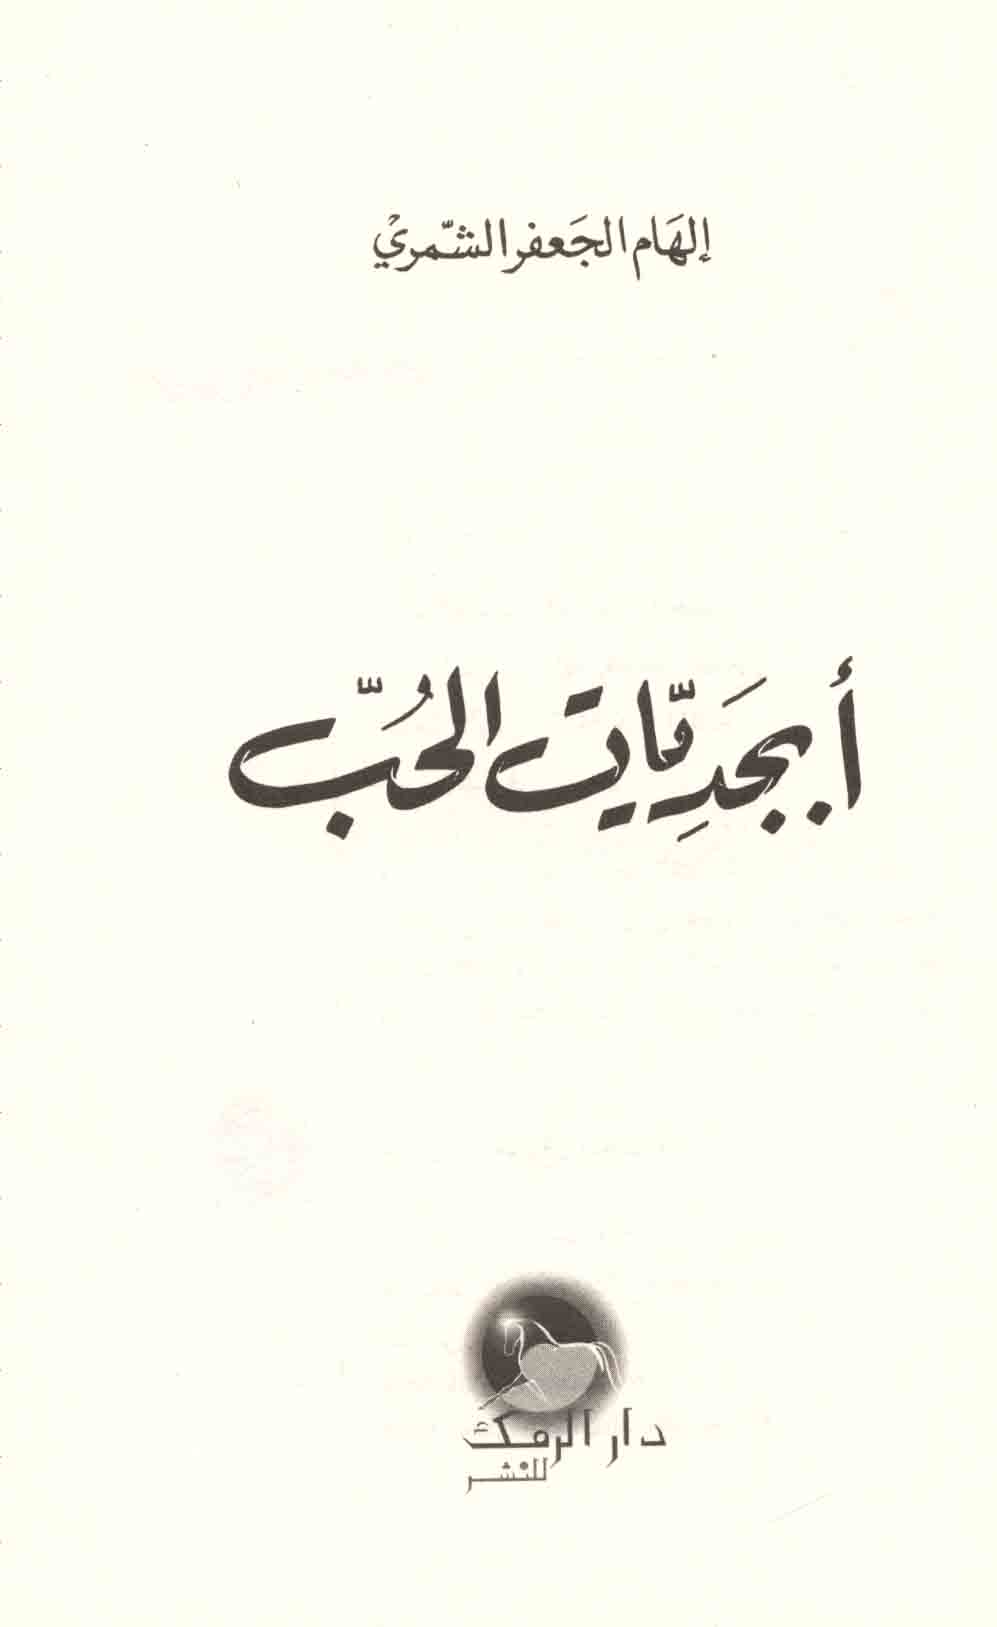 إلهَام الجَعفر الشّمريْ
أبجَدِيّات الحُبّ
دار الرمك
للنشر